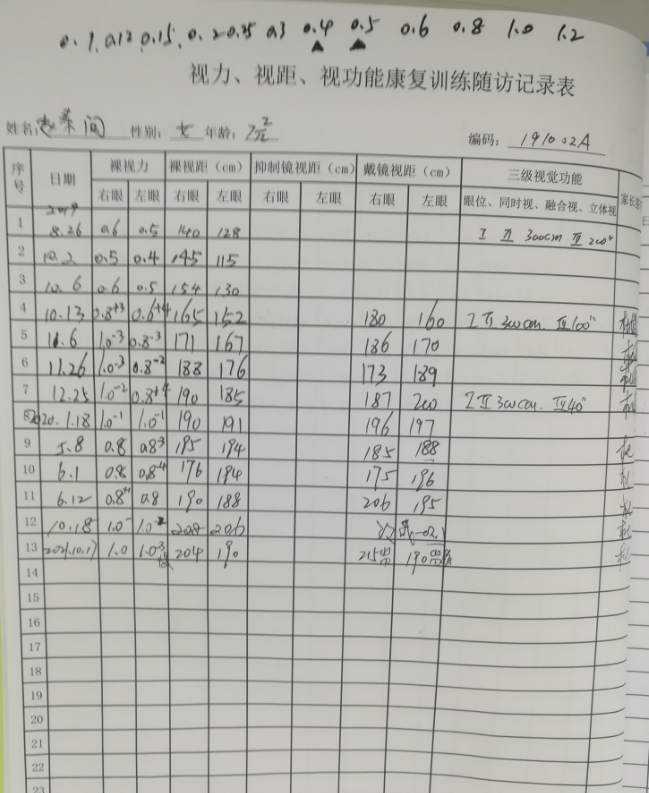 0.1 0.12 0.15 0.2 0.25 0.3 0.4 0.5 0.6 0.8 1.0 1.2
视力、视距、视功能康复训练随访记录表
姓名: 性别: 女 年龄: 7
编码: 191002A
序号 日期 裸视力 裸视距（cm） 抑制镜视距（cm） 戴镜视距（cm） 三级视觉功能
右眼 左眼 右眼 左眼 右眼 左眼 右眼 左眼 眼位、同时视、融合视、立体视
1 2019 8.26 0.6 0.5 140 128 I II 300cm III 200"
2 10.2 0.5 0.4 145 115
3 10.6 0.6 0.5 154 130
4 10.13 0.8+3 0.6+4 165 152 180 160 I II 300cm. III 100"
5 11.6 1.0-3 0.8-3 171 167 186 170
6 11.26 1.0-3 0.8-2 188 176 173 189
7 12.25 1.0-2 0.8+4 190 185 187 200 I II 300cm. III 40"
8 2020.1.18 1.0-1 1.0-1 190 191 196 197
9 5.8 0.8 0.8-3 195 194 185 188
10 6.1 0.8 0.8-4 176 194 175 196
11 6.12 0.8+1 0.8 190 188 206 195
12 10.18 1.0- 1.0-2 208 206
13 2021.10.17 1.0 1.0-3 204 190 215 190
14
15
16
17
18
19
20
21
22
23